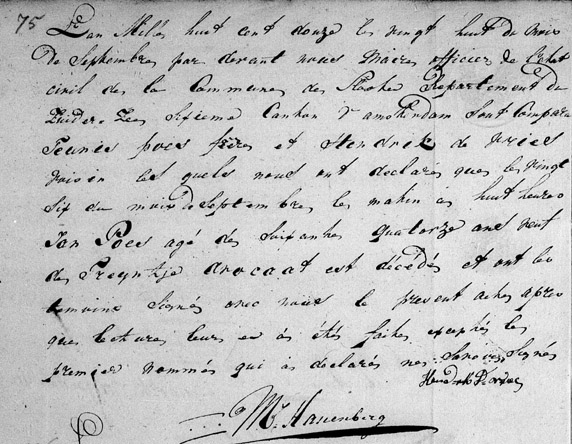 75 L'an Mille huit cent douze les vingt huit du mois
De Septembre par devant nous Maire officier de l'etat
civil de la Commune de Slooke Departement du
Zuider Zee Sixieme Canton d'amsterdam sont compara
Teunis poes frere et Hendrik de Vries
voisin les quels nous ont declarés ques les vingt
six du mois de Septembre les matin à huit heures
Jan Poes agé de Soixante quatorze ans veuf
de Treyntje avocaat est décédés et ont les
temoins signés avec nous le present actes apres
que lectures leur en à étés faites exceptés les
premier nommés qui à declarés ne Savoir Signés
Hendrik De Vries
Mr Hanenberg